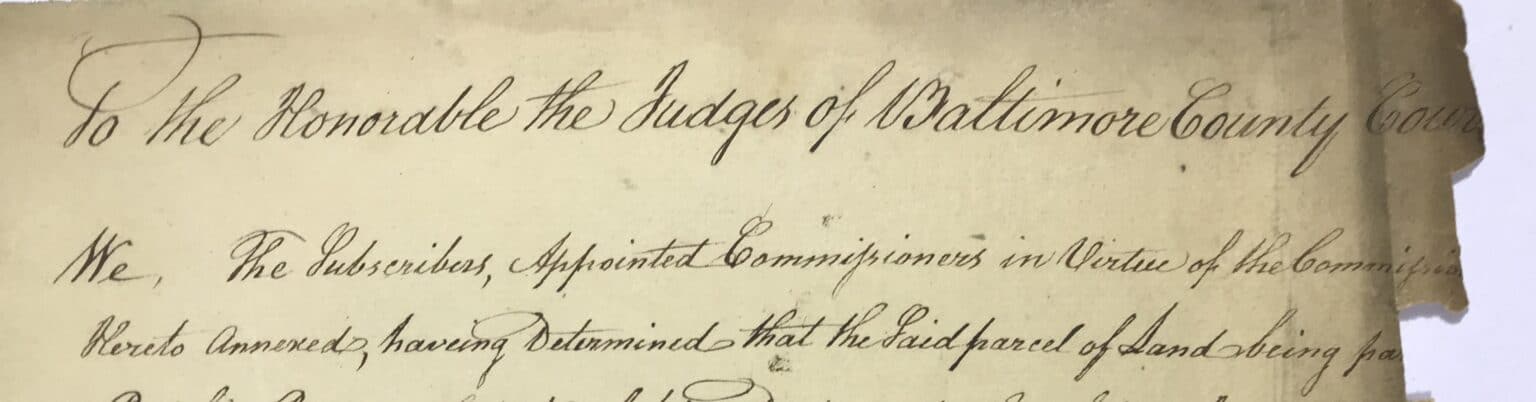 To the Honorable the Judges of Baltimore County Cour
We, The Subscribers, Appointed Commissioners in Virtue of the Commissio
Hereto Annexed, haveing Determined that the Said parcel of Land being pa